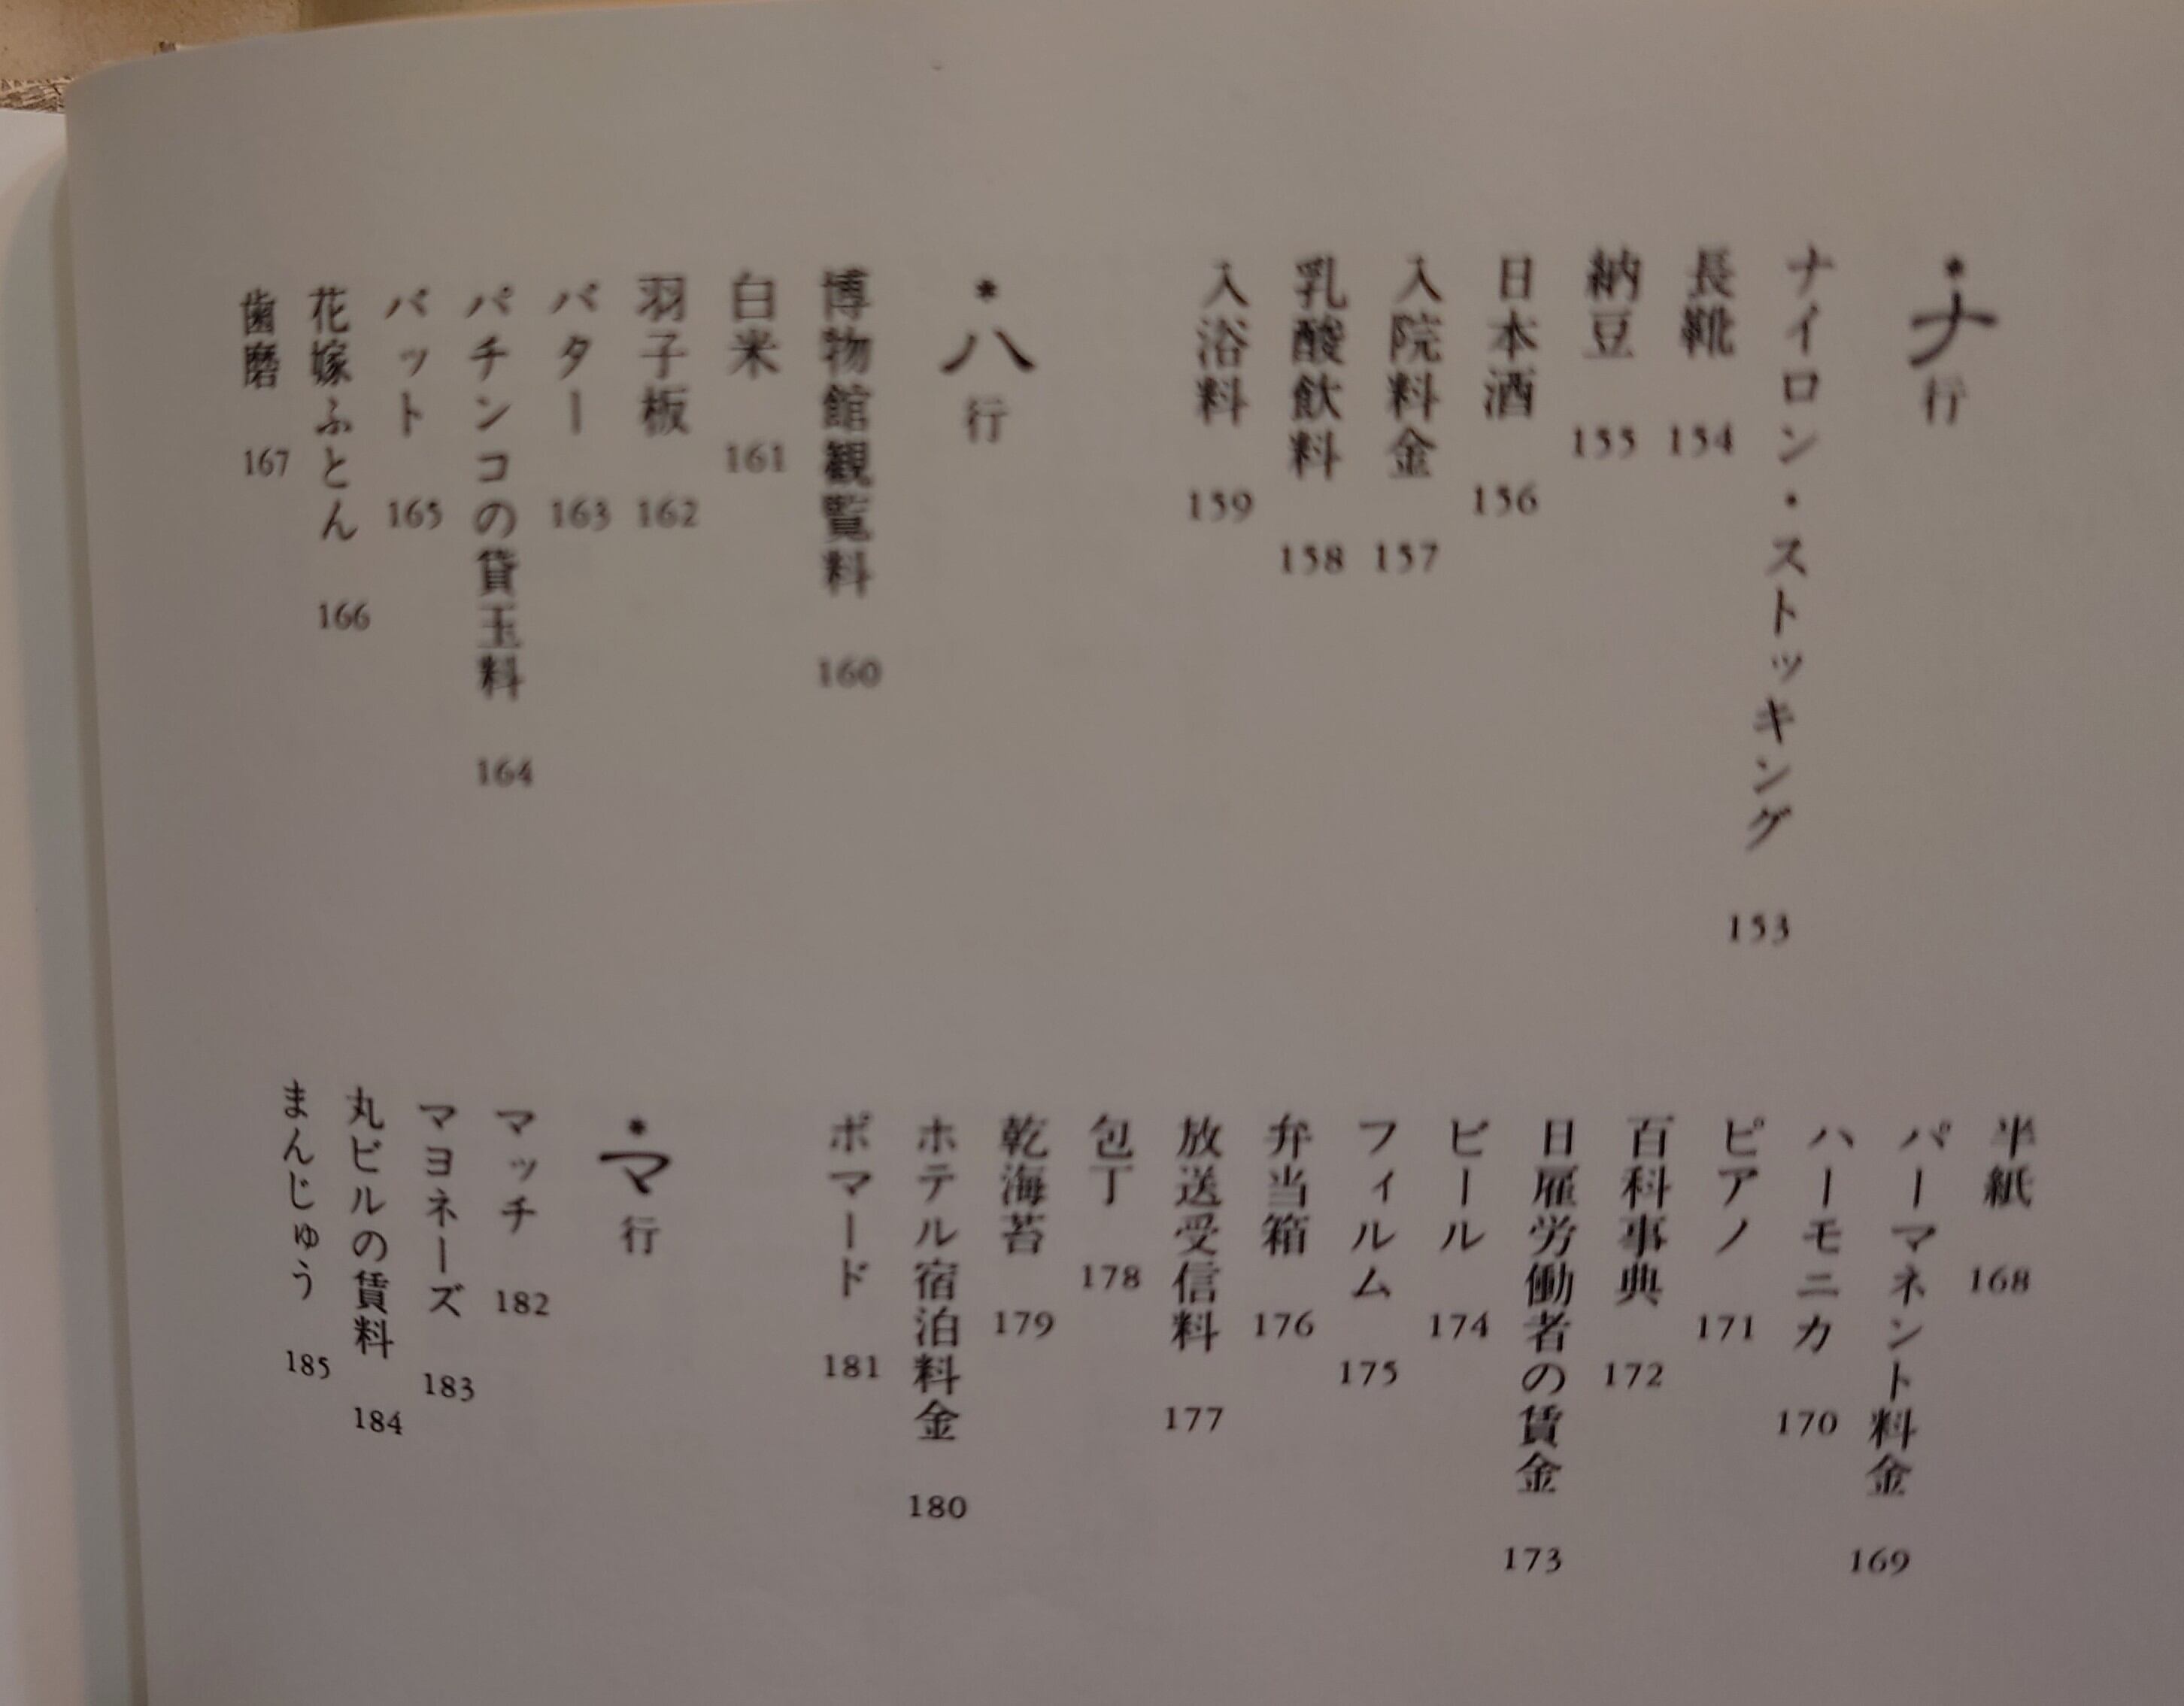 *ナ行
ナイロン・ストッキング 153
長靴 154
納豆 155
日本酒 156
入院料金 157
乳酸飲料 158
入浴料 159
*ハ行
博物館観覧料 160
白米 161
羽子板 162
バター 163
パチンコの貸玉料 164
バット 165
花嫁ふとん 166
歯磨 167
半紙 168
パーマネント料金 169
ハーモニカ 170
ピアノ 171
百科事典 172
日雇労働者の賃金 173
ビール 174
フィルム 175
弁当箱 176
放送受信料 177
包丁 178
乾海苔 179
ホテル宿泊料金 180
ポマード 181
*マ行
マッチ 182
マヨネーズ 183
丸ビルの賃料 184
まんじゅう 185